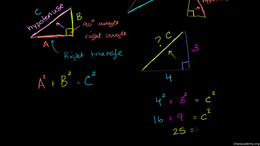 C
hypotenuse
B
90° angle
right angle
A
Right triangle
A² + B² = C²
? C
3
4
4² + 3² = C²
16 + 9 = C²
25 =